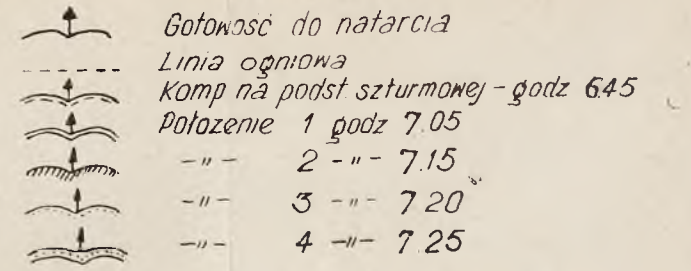 Gotowość do natarcia
Linia ogniowa
Komp na podst szturmowej - godz 6.45
Położenie 1 godz 7.05
-"- 2 -"- 7.15
-"- 3 -"- 7.20
-"- 4 -"- 7.25